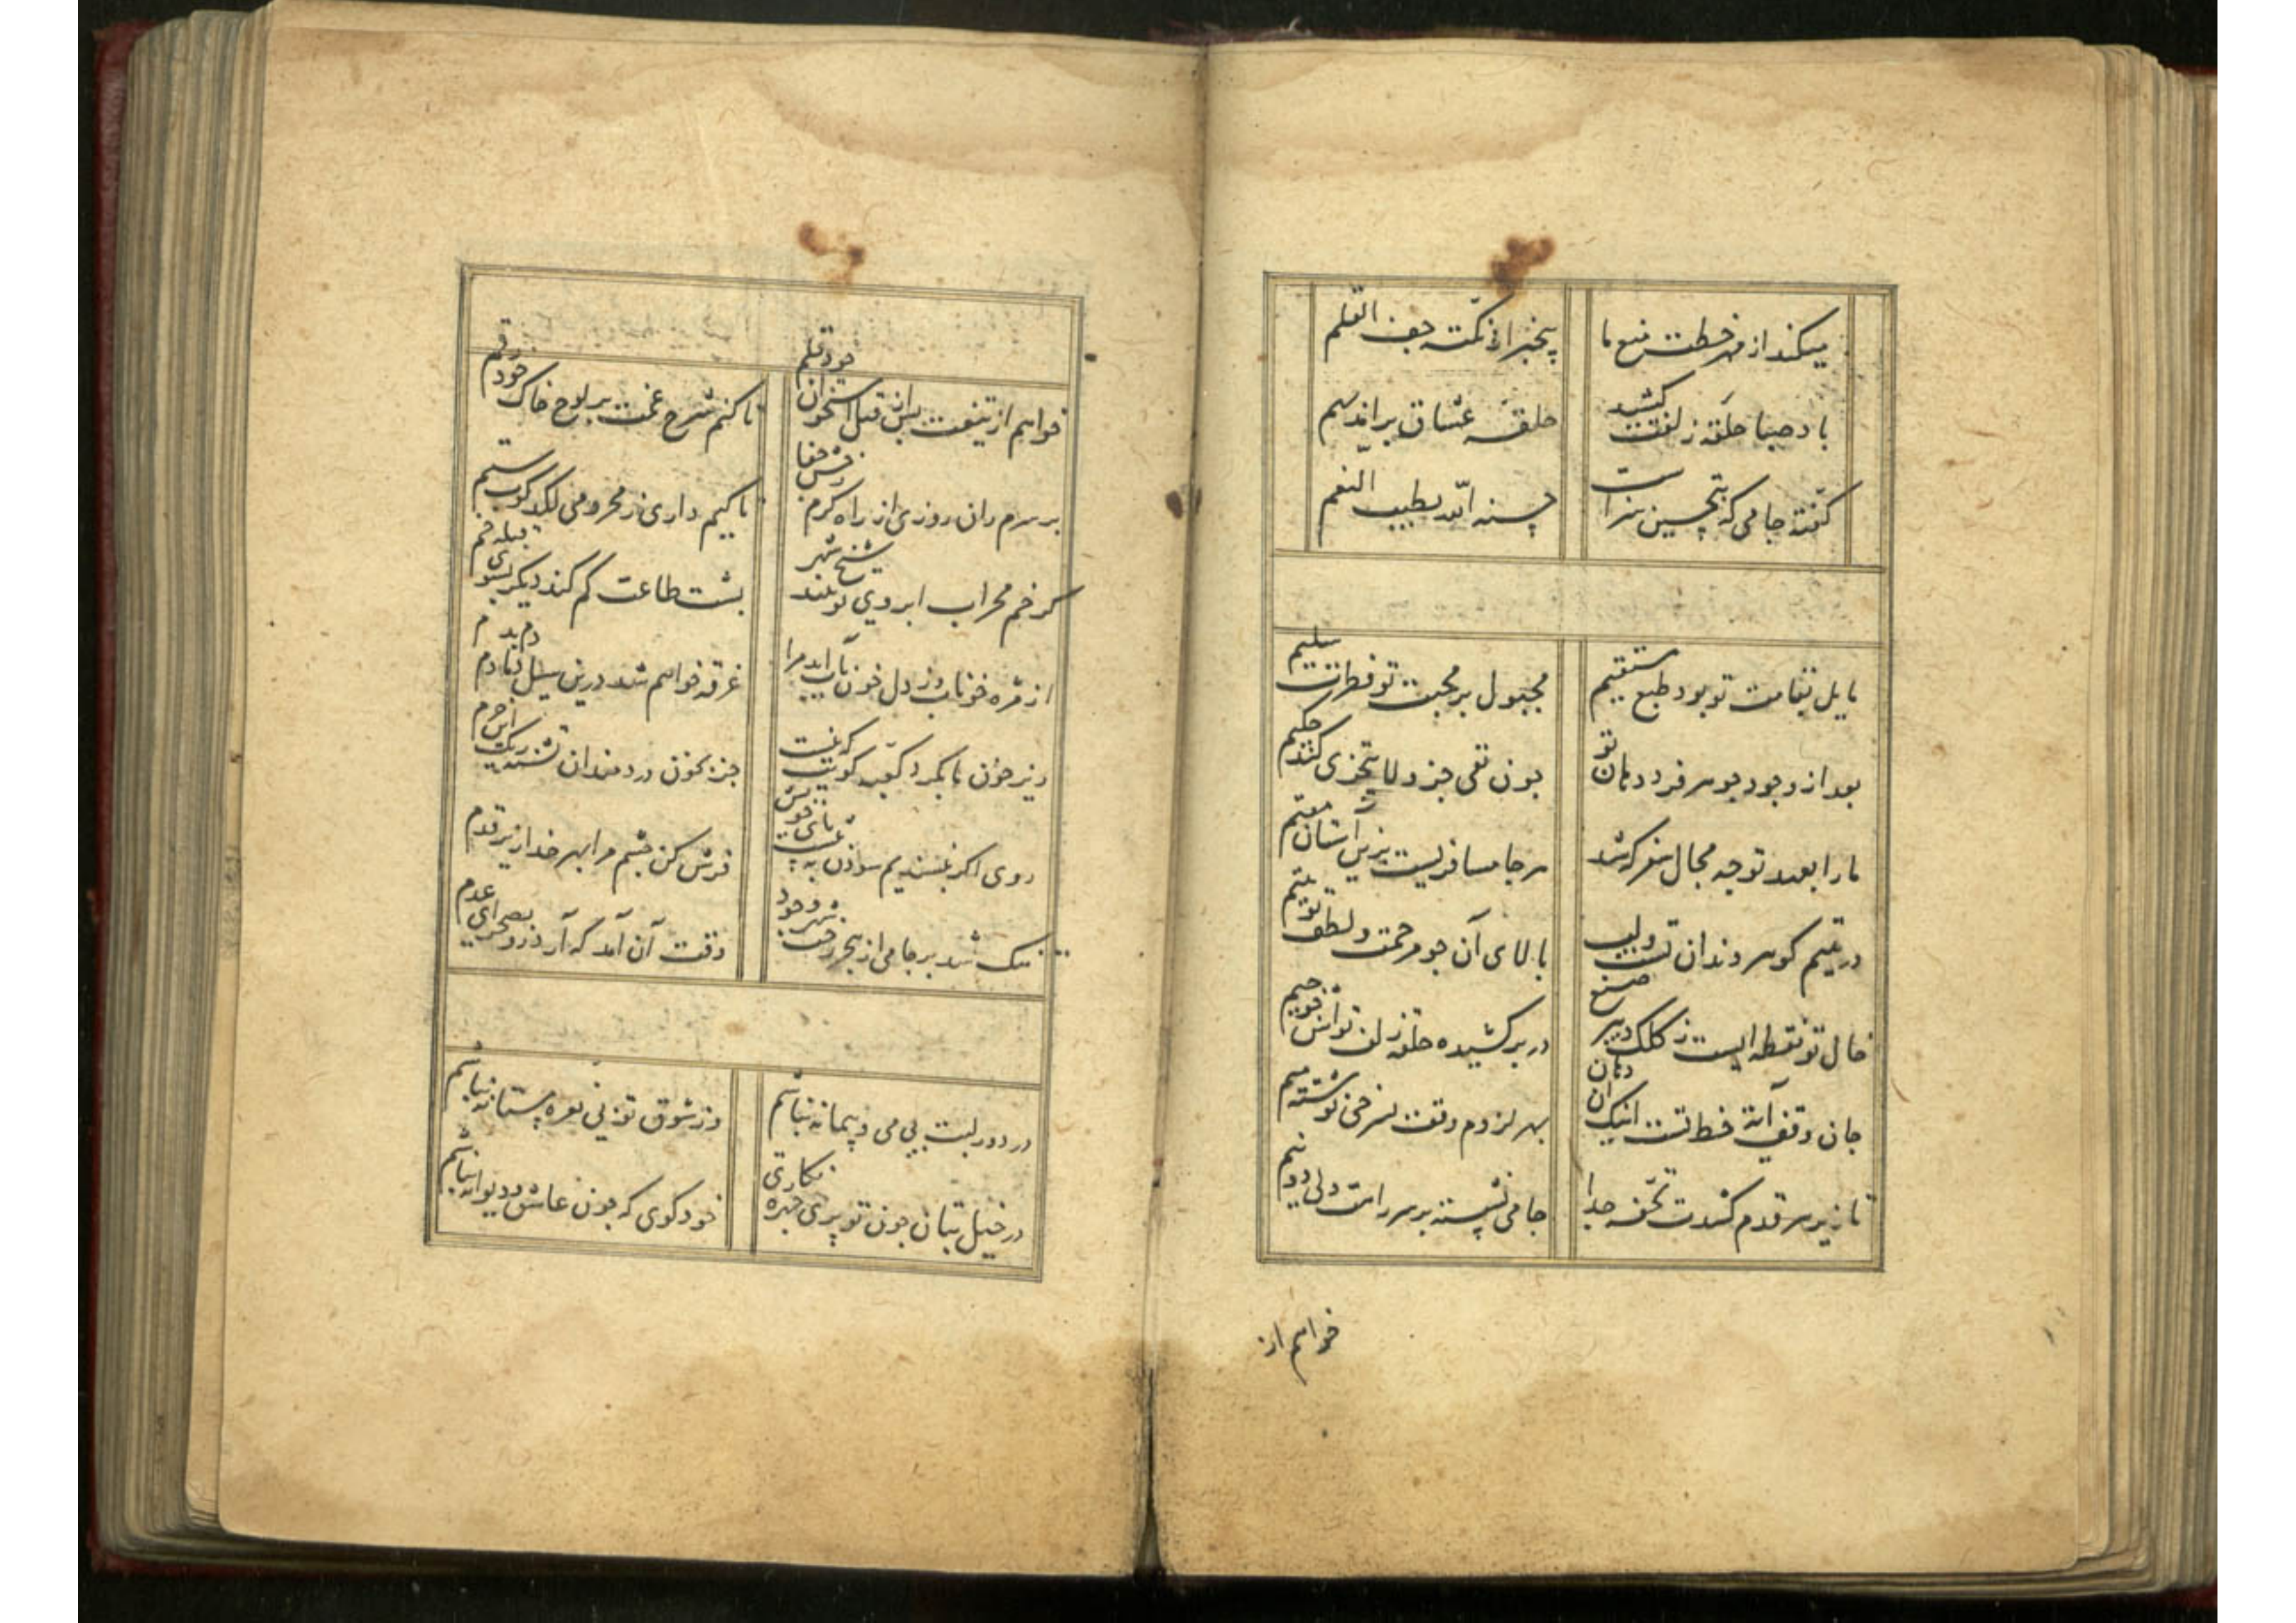 میکند از مهر خطت منع ما
بیخبر از نکته جف القلم
باد صبا حلقه زلفت کشید
حلقه عشاق بر اندم بهم
گفته جامی که بتحسین سزاست
حسنه الله بطیب النغم
مایل بقامت تو بود طبع مستقیم
مجبول بر محبت تو فطرت سلیم
بعد از وجود جوهر فرد دهان تو
چون نفی جزو لا یتجزی کند حکیم
ما را بعهد تو چه مجال سفر که شد
هر جا مسافریست برین آستان مقیم
در یتیم گوهر دندان تست و لب
بالای آن چو مرحمت و لطف تو یتیم
خال تو نقطه ایست ز کلک دبیر صنع
در بر کشیده حلقه زلف تواش چو جیم
جان وقف آیة خط تست اینک آن دهان
بهر لزوم وقف بسرخی نوشته میم
تا زیر هر قدم کشدت تحفه جدا
جامی نشسته بر سر راهت دلی دو نیم
خواهم از
خواهم از تیغت پس از قتل استخوان خود قلم
تا کنم شرح غمت بر لوح خاک خود رقم
بر سرم ران روزی از راه کرم رخش جفا
تا کیم داری ز محرومی لگدکوب ستم
گر خم محراب ابروی تو بیند شیخ شهر
پشت طاعت کم کند دیگر بسوی قبله خم
از مژه خوناب وز دل خون ناب آید مرا
غرقه خواهم شد درین سیل دمادم دم بدم
ریز خون ما بگرد کعبه کویت که نیست
جز بخون دردمندان تشنه ریگ این حرم
روی اگر نپسندیم سودن به پشت پای خویش
فرش کن چشم مرا بهر خدا زیر قدم
تنگ شد بر جامی از هجر رخت شهر وجود
وقت آن آمد که آرد رو بصحرای عدم
در دور لبت بی می و پیمانه نباشم
وز شوق تو بی نعره مستانه نباشم
در خیل بتان چون تو پری چهره نگاری
خود گوی که چون عاشق و دیوانه نباشم